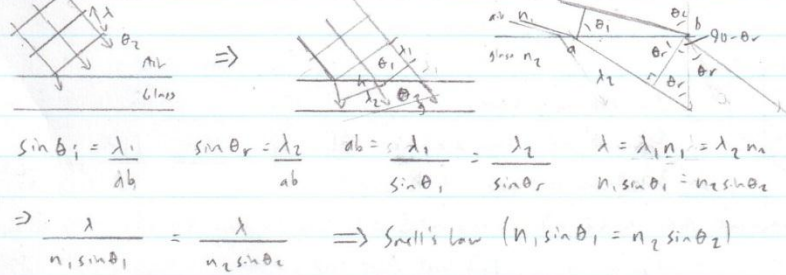 λ
θ₂
Air
Glass
⇒
λ₁
θ₁
λ₂
θ₂
air n₁
glass n₂
θ₁
a
b
90-θr
θr
θr
θr
λ₂
sinθi = λ₁/ab sinθr = λ₂/ab ab = λ₁/sinθ₁ = λ₂/sinθr λ = λ₁n₁ = λ₂n₂
n₁sinθ₁ = n₂sinθ₂
⇒ λ/n₁sinθ₁ = λ/n₂sinθ₂ ⇒ Snell's Law (n₁sinθ₁ = n₂sinθ₂)